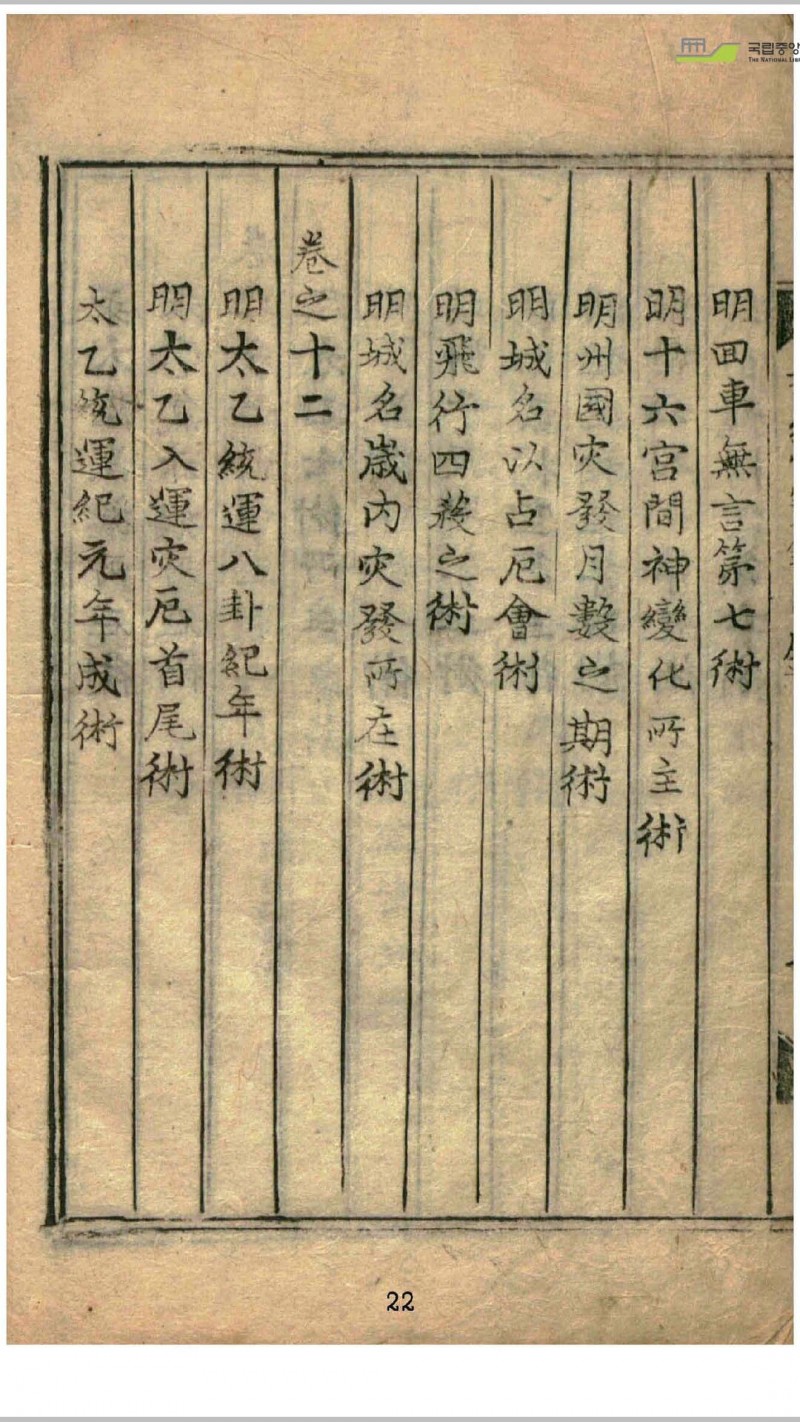 국립중앙
THE NATIONAL LIB
明回車無言第七術
明十六宮間神變化所主術
明州國灾發月數之期術
明城名以占厄會術
明飛行四殺之術
明城名歲內灾發所在術
卷之十二
明太乙統運八卦紀年術
明太乙入運灾厄首尾術
太乙統運紀元年成術
22